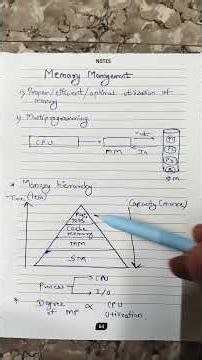 NOTES
Memory Management
1) Proper/efficient/optimal utilization of
memory
2) Multiprogramming
CPU
MM
In
SM
* Memory hierarchy
Time (less)
Capacity (increase)
Cache
memory
MM
SM
Process
CPU
I/O
* Degree of MP ∝ CPU Utilization
64